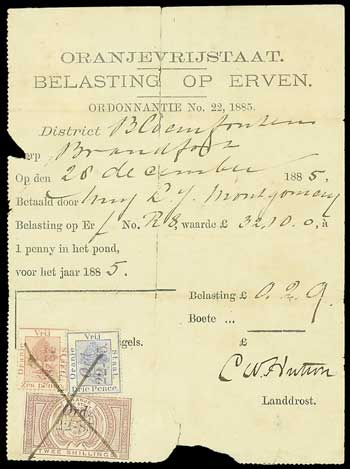 ORANJEVRIJSTAAT.
BELASTING OP ERVEN.
ORDONNANTIE No. 22, 1885.
District Bloemfontein
erp Brandfort
Op den 28 december 1885.
Betaald door L J Montgomery
Belasting op Erf No. R8, waarde £ 32,10.0, à
1 penny in het pond,
voor het jaar 1885.
Belasting £ 0.2.9
Boete ... „
gels.
C W Hutton
Landdrost.
Oranje Vrij Staat.
Een Penny
Oranje Vrij Staat.
Drie Pence
Ord.
TWEE SHILLINGS